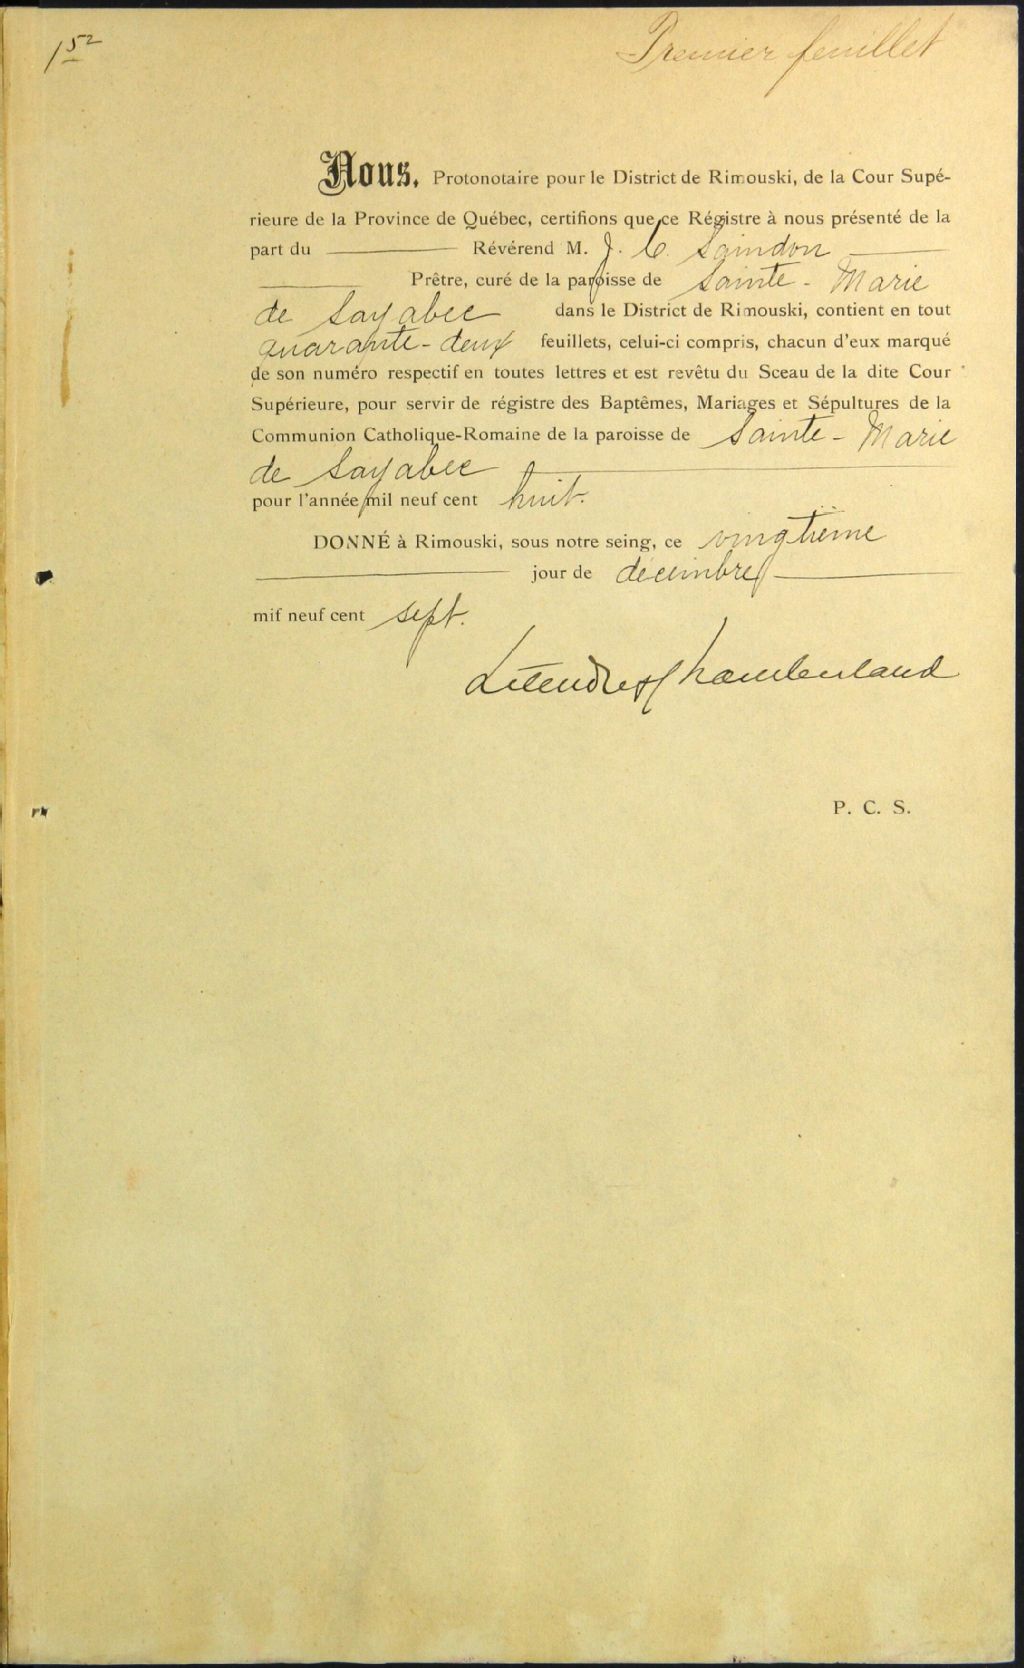 152
Premier feuillet
Nous, Protonotaire pour le District de Rimouski, de la Cour Supé-
rieure de la Province de Québec, certifions que ce Régistre à nous présenté de la
part du Révérend M. J. C. Saindon
Prêtre, curé de la paroisse de Sainte-Marie
de Sayabec dans le District de Rimouski, contient en tout
quarante-deux feuillets, celui-ci compris, chacun d'eux marqué
de son numéro respectif en toutes lettres et est revêtu du Sceau de la dite Cour
Supérieure, pour servir de régistre des Baptêmes, Mariages et Sépultures de la
Communion Catholique-Romaine de la paroisse de Sainte-Marie
de Sayabec
pour l'année mil neuf cent huit.
DONNÉ à Rimouski, sous notre seing, ce vingtième
jour de décembre
mif neuf cent sept.
Letendre & Chamberland
P. C. S.